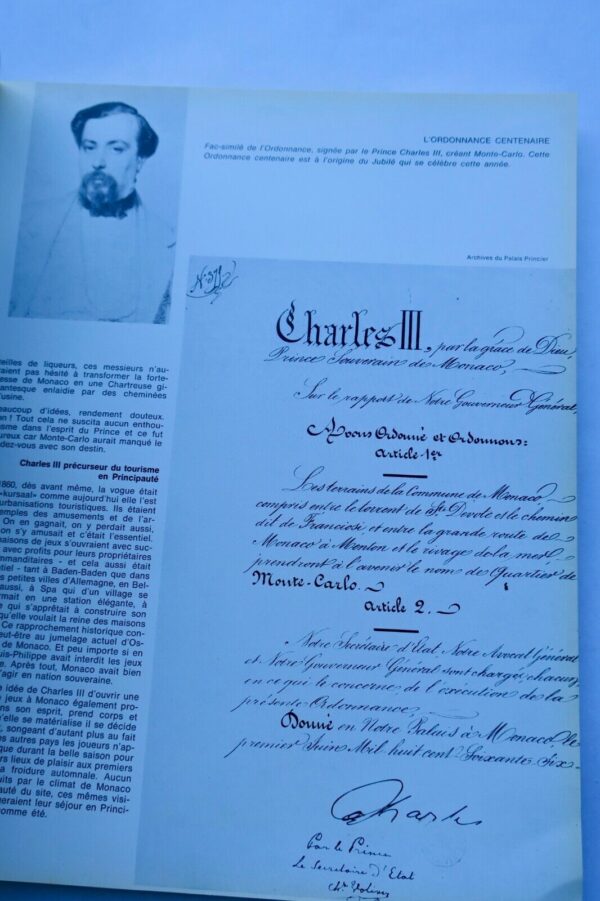 L'ORDONNANCE CENTENAIRE
Fac-similé de l'Ordonnance, signée par le Prince Charles III, créant Monte-Carlo. Cette
Ordonnance centenaire est à l'origine du Jubilé qui se célèbre cette année.
Archives du Palais Princier
Charles III, par la grâce de Dieu,
Prince Souverain de Monaco,
Sur le rapport de Notre Gouverneur Général,
Avons Ordonné et Ordonnons:
Article 1er
Les terrains de la Commune de Monaco
compris entre le torrent de Ste Dévote et le chemin
dit de Franciosi, et entre la grande route de
Monaco à Menton et le rivage de la mer,
prendront à l'avenir le nom de Quartier de
Monte-Carlo.
Article 2.
Notre Secrétaire d'Etat, Notre Avocat Général
et Notre Gouverneur Général sont chargés, chacun
en ce qui le concerne, de l'exécution de la
présente Ordonnance,
Donné en Notre Palais à Monaco le
premier Juin Mil huit cent Soixante Six
Charles
Par le Prince
Le Secrétaire d'Etat
eilles de liqueurs, ces messieurs n'au-
raient pas hésité à transformer la forte-
esse de Monaco en une Chartreuse gi-
antesque enlaidie par des cheminées
'usine.
eaucoup d'idées, rendement douteux.
on ! Tout cela ne suscita aucun enthou-
sme dans l'esprit du Prince et ce fut
ureux car Monte-Carlo aurait manqué le
dez-vous avec son destin.
Charles III précurseur du tourisme
en Principauté
1860, dès avant même, la vogue était
«kursaal» comme aujourd'hui elle l'est
urbanisations touristiques. Ils étaient
emples des amusements et de l'ar-
On en gagnait, on y perdait aussi,
on s'y amusait et c'était l'essentiel.
aisons de jeux s'ouvraient avec suc-
avec profits pour leurs propriétaires
mmanditaires - et cela aussi était
tiel - tant à Baden-Baden que dans
s petites villes d'Allemagne, en Bel-
aussi, à Spa qui d'un village se
rmait en une station élégante, à
e qui s'apprêtait à construire son
qu'elle voulait la reine des maisons
Ce rapprochement historique con-
eut-être au jumelage actuel d'Os-
de Monaco. Et peu importe si en
is-Philippe avait interdit les jeux
e. Après tout, Monaco avait bien
'agir en nation souveraine.
e idée de Charles III d'ouvrir une
e jeux à Monaco également pro-
ns son esprit, prend corps et
'elle se matérialise il se décide
, songeant d'autant plus au fait
es autres pays les joueurs n'ap-
que durant la belle saison pour
rs lieux de plaisir aux premiers
a froidure automnale. Aucun
uits par le climat de Monaco
auté du site, ces mêmes visi-
geraient leur séjour en Princi-
omme été.